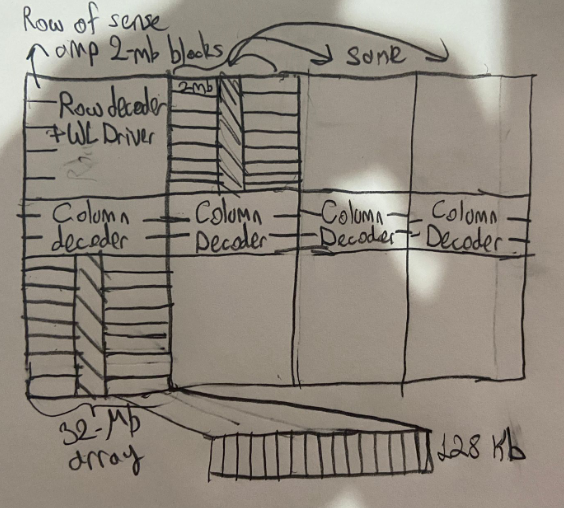 Row of sense
amp 2-mb blocks
same
2mb
Row decoder
+ WL Driver
Column
decoder
Column
Decoder
Column
Decoder
Column
Decoder
32-Mb
array
128 Kb